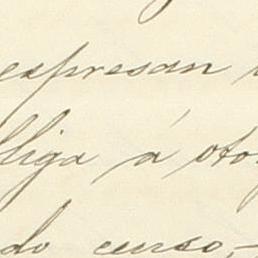 expresan
lliga á oto
do censo,